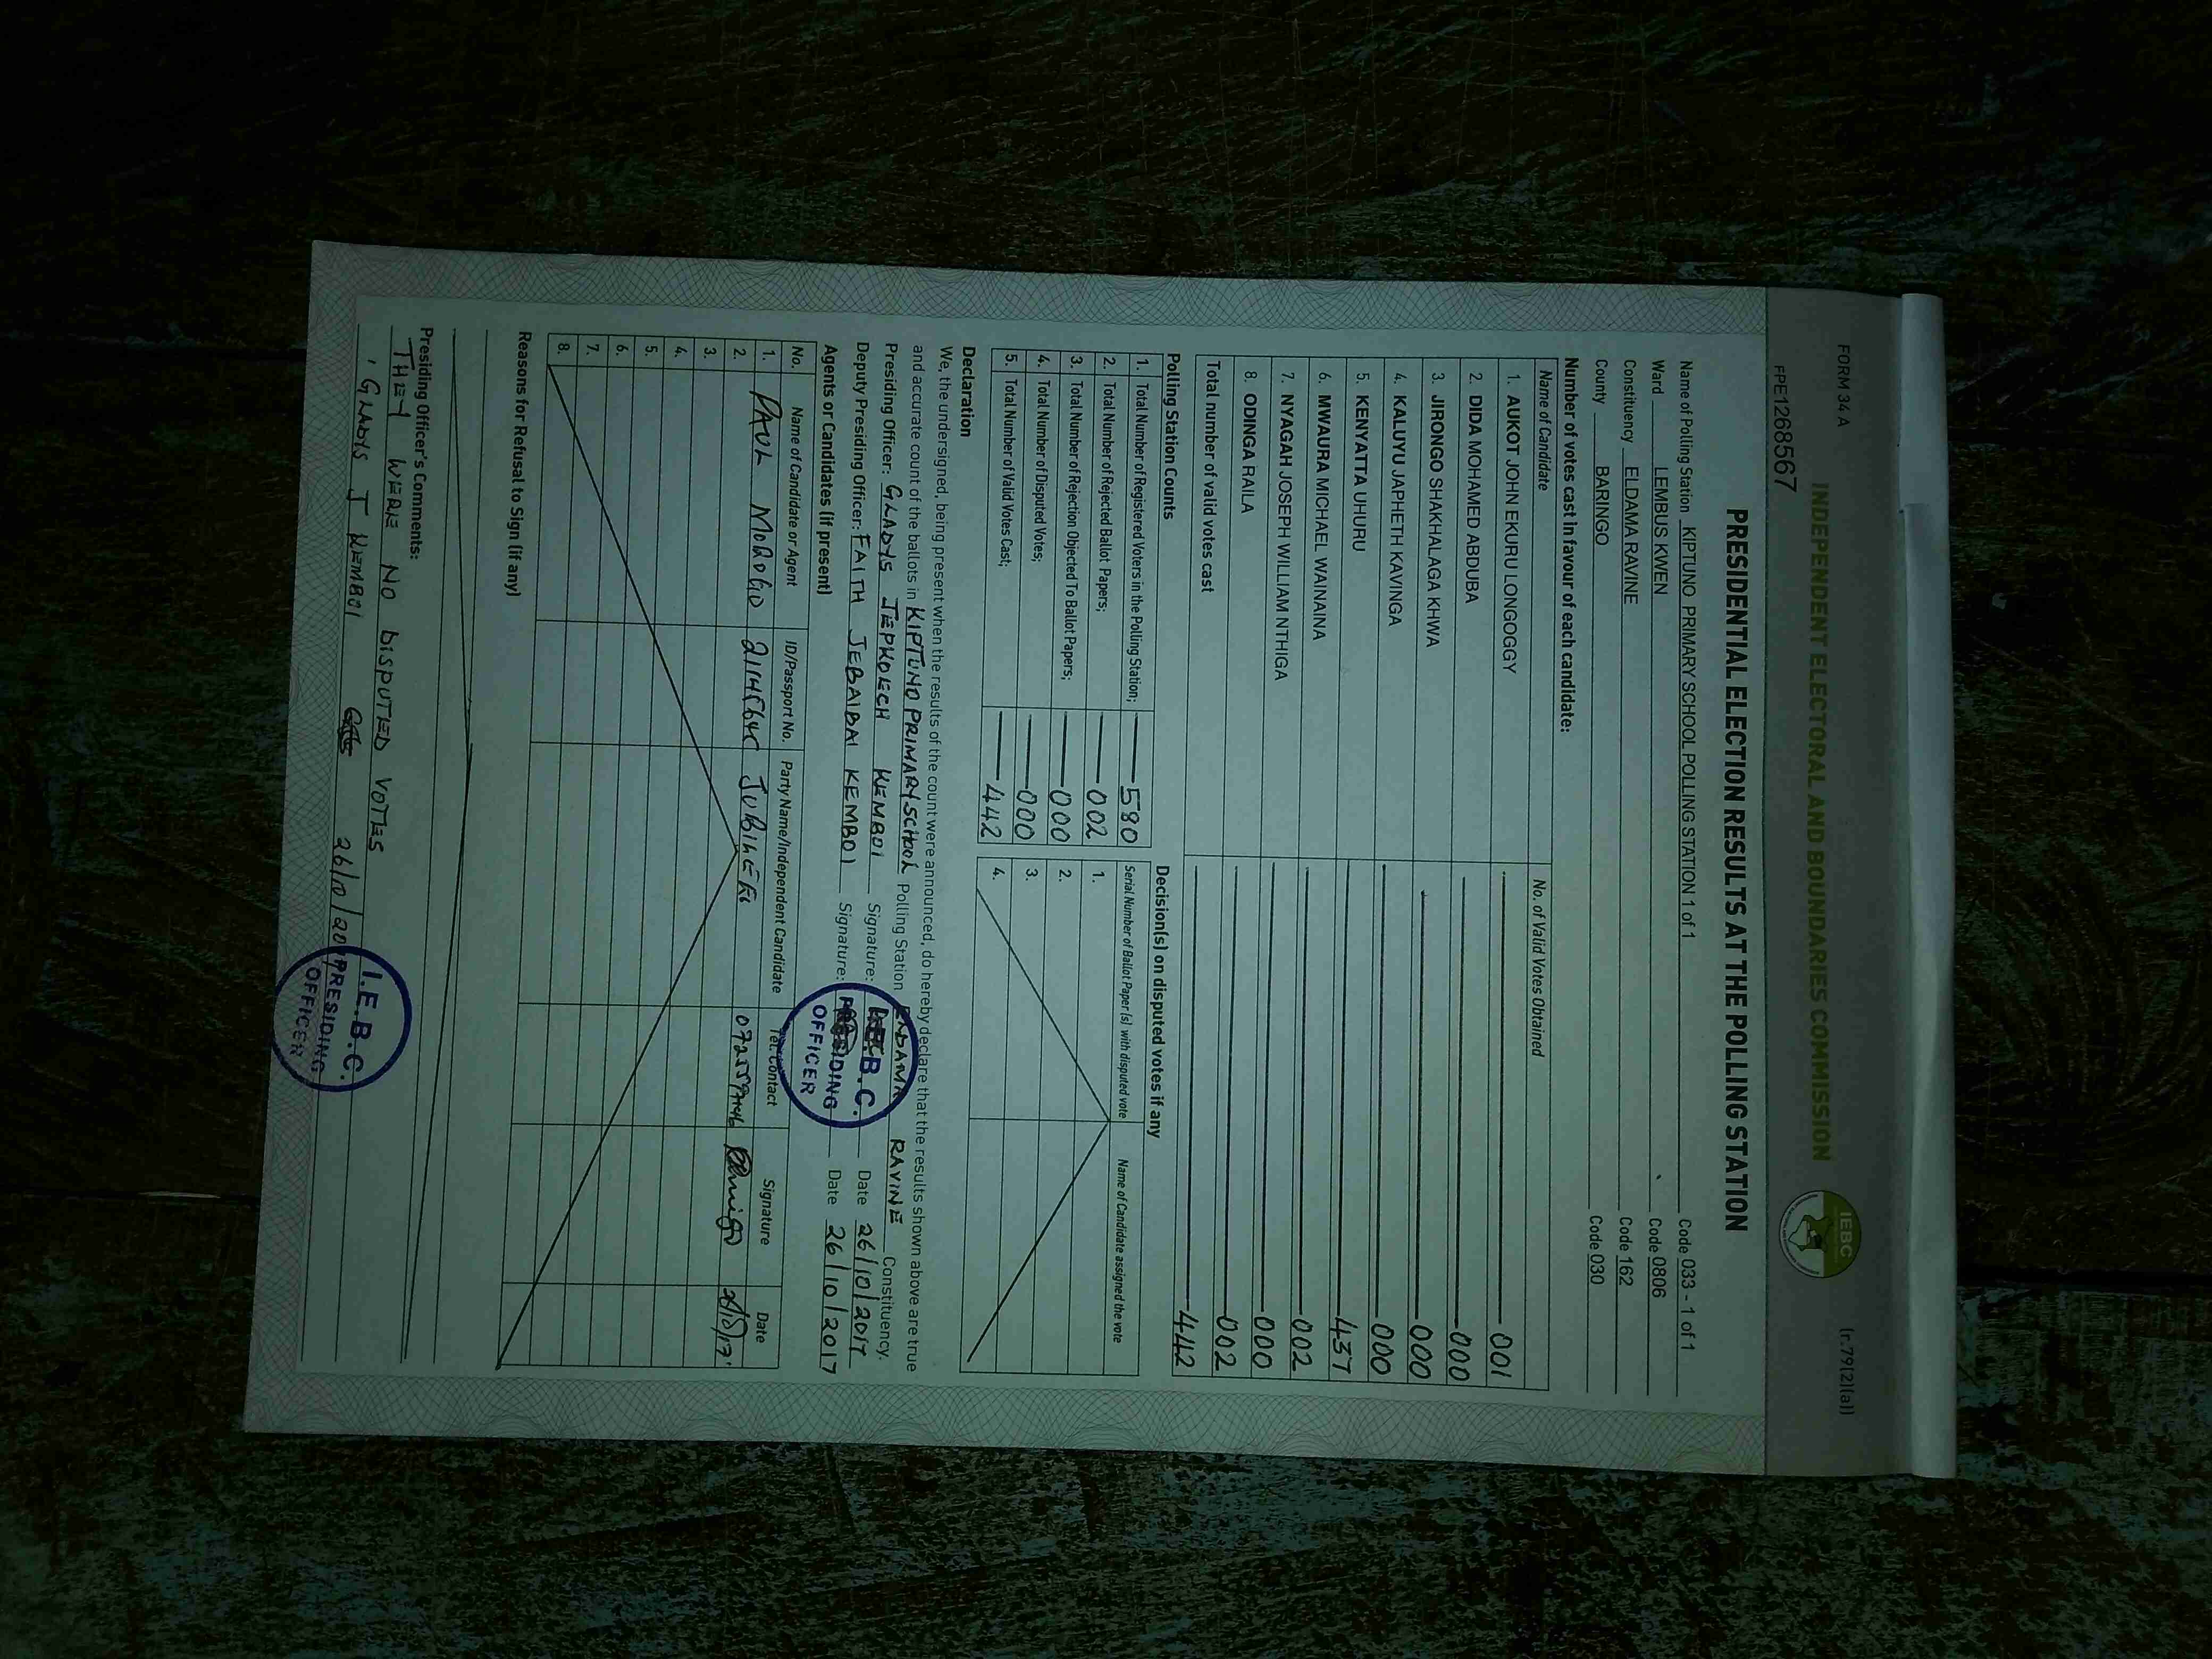 FORM 34 A
(r.79(2)(a))
INDEPENDENT ELECTORAL AND BOUNDARIES COMMISSION
IEBC
FPE1268567
PRESIDENTIAL ELECTION RESULTS AT THE POLLING STATION
Name of Polling Station KIPTUNO PRIMARY SCHOOL POLLING STATION 1 of 1 Code 033 - 1 of 1
Ward LEMBUS KWEN Code 0806
Constituency ELDAMA RAVINE Code 162
County BARINGO Code 030
Number of votes cast in favour of each candidate:
Name of Candidate No. of Valid Votes Obtained
1. AUKOT JOHN EKURU LONGOGGY 001
2. DIDA MOHAMED ABDUBA 000
3. JIRONGO SHAKHALAGA KHWA 000
4. KALUYU JAPHETH KAVINGA 000
5. KENYATTA UHURU 437
6. MWAURA MICHAEL WAINAINA 002
7. NYAGAH JOSEPH WILLIAM NTHIGA 000
8. ODINGA RAILA 002
Total number of valid votes cast 442
Polling Station Counts
1. Total Number of Registered Voters in the Polling Station; 580
2. Total Number of Rejected Ballot Papers; 002
3. Total Number of Rejection Objected To Ballot Papers; 000
4. Total Number of Disputed Votes; 000
5. Total Number of Valid Votes Cast; 442
Decision(s) on disputed votes if any
Serial Number of Ballot Paper (s) with disputed vote Name of Candidate assigned the vote
1.
2.
3.
4.
Declaration
We, the undersigned, being present when the results of the count were announced, do hereby declare that the results shown above are true
and accurate count of the ballots in KIPTUNO PRIMARY SCHOOL Polling Station ELDAMA RAVINE Constituency.
Presiding Officer: GLADYS JEPKOECH KEMBOI Signature: Date 26/10/2017
Deputy Presiding Officer: FAITH JEBAIBAI KEMBOI Signature: Date 26/10/2017
I.E.B.C.
PRESIDING
OFFICER
Agents or Candidates (if present)
No. Name of Candidate or Agent ID/Passport No. Party Name/Independent Candidate Tel. Contact Signature Date
1. PAUL JUBILEE
2.
3.
4.
5.
6.
7.
8.
Reasons for Refusal to Sign (if any)
Presiding Officer's Comments:
THEY WERE NO DISPUTED VOTES
GLADYS J KEMBOI 26/10/20
I.E.B.C.
PRESIDING
OFFICER